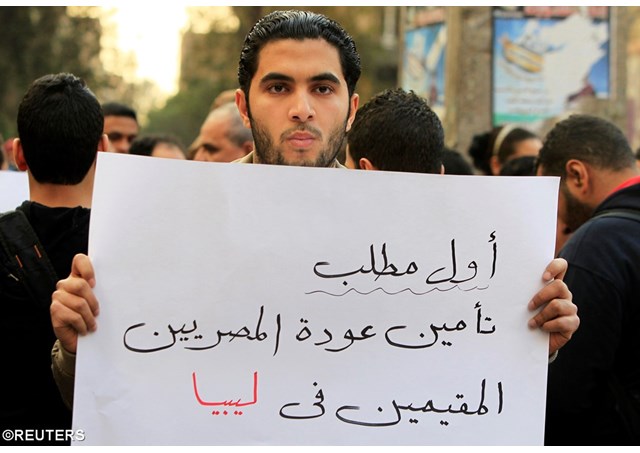 أول مطلب
تأمين عودة المصريين
المقيمين فى ليبيا
©REUTERS